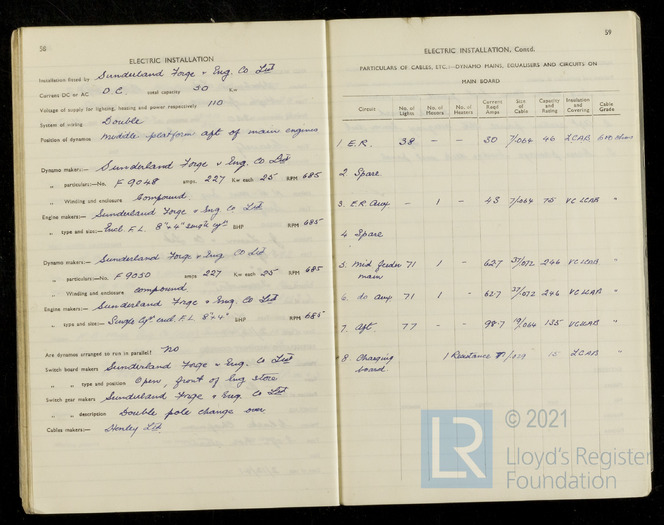 58
ELECTRIC INSTALLATION
Installation fitted by Sunderland Forge & Eng. Co Ltd
Current DC or AC D.C. total capacity 50 Kw
Voltage of supply for lighting, heating and power respectively 110
System of wiring Double
Position of dynamos Middle platform aft of main engines
Dynamo makers:— Sunderland Forge & Eng. Co Ltd
„ particulars:—No. F 9048 amps. 227 Kw each 25 RPM 685
„ Winding and enclosure Compound.
Engine makers:— Sunderland Forge & Eng. Co Ltd
„ type and size:— Encl. F.L. 8" + 4" Single cyl. BHP RPM 685
Dynamo makers:— Sunderland Forge & Eng. Co Ltd
„ particulars:—No. F 9050 amps 227 Kw each 25 RPM 685
„ Winding and enclosure compound
Engine makers:— Sunderland Forge & Eng. Co Ltd
„ type and size:— Single Cyl. encl. F.L. 8" + 4" BHP RPM 685
Are dynamos arranged to run in parallel? No
Switch board makers Sunderland Forge & Eng. Co Ltd
„ „ type and position Open, front of Eng store
Switch gear makers Sunderland Forge & Eng. Co Ltd
„ „ description Double pole change over
Cables makers:— Henley Ltd.
59
ELECTRIC INSTALLATION, Contd.
PARTICULARS OF CABLES, ETC.—DYNAMO MAINS, EQUALISERS AND CIRCUITS ON
MAIN BOARD
Circuit No. of Lights No. of Motors No. of Heaters Current Reqd. Amps Size of Cable Capacity and Rating Insulation and Covering Cable Grade
1 E.R. 38 – – 30 7/064 46 LCAB
2. Spare
3. E.R. Aux – 1 – 43 7/064 75 VC LCAB "
4 Spare
5. Mid Feeder main 71 1 – 62.7 37/072 246 VC LCAB "
6. do aux. 71 1 – 62.7 37/072 246 VC LCAB "
7. Aft 77 – – 98.7 19/064 135 VC LCAB "
8 Charging board. 1 Resistance 15 LCAB "
© 2021
LR
Lloyd's Register
Foundation